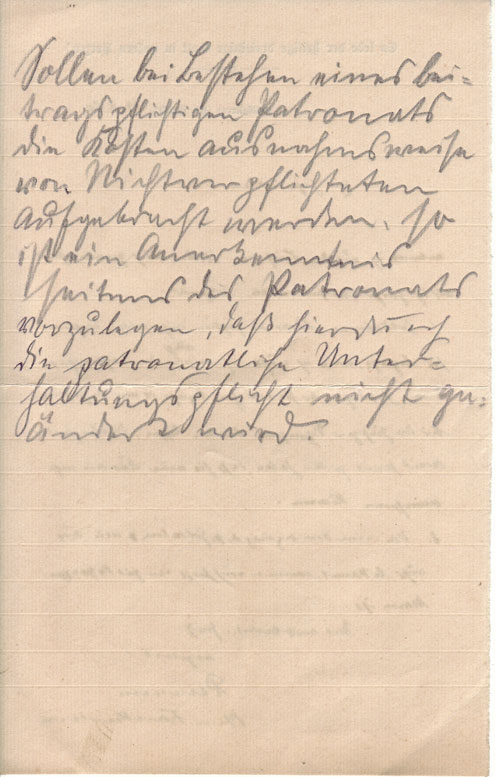 Sollen bei Bestehen eines bei-
tragspflichtigen Patronats
die Kosten ausnahmsweise
von Nichtverpflichteten
aufgebracht werden, so
ist ein Anerkenntnis
seitens des Patronats
vorzulegen, daß hierdurch
die patronatliche Unter-
haltungspflicht nicht ge-
ändert wird.